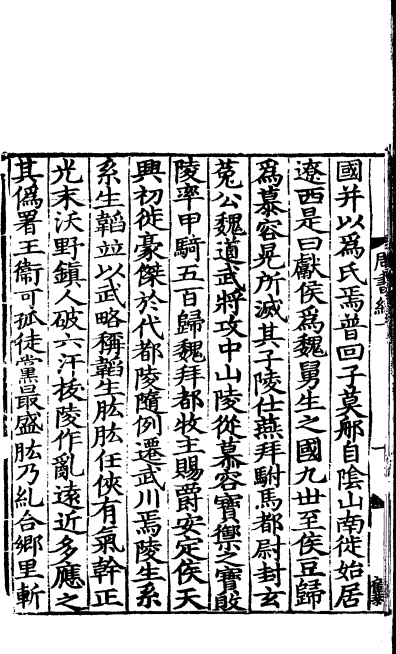 國并以爲氏焉普回子莫那自陰山南徙始居
遼西是曰獻侯爲魏舅生之國九世至侯豆歸
爲慕容晃所滅其子陵仕燕拜駙馬都尉封玄
菟公魏道武將攻中山陵從慕容寶禦之寶敗
陵率甲騎五百歸魏拜都牧主賜爵安定侯天
興初徙豪傑於代都陵隨例遷武川焉陵生系
系生韜竝以武略稱韜生肱肱任俠有氣幹正
光末沃野鎮人破六汗拔陵作亂遠近多應之
其僞署王衞可孤徒黨最盛肱乃糺合鄉里斬